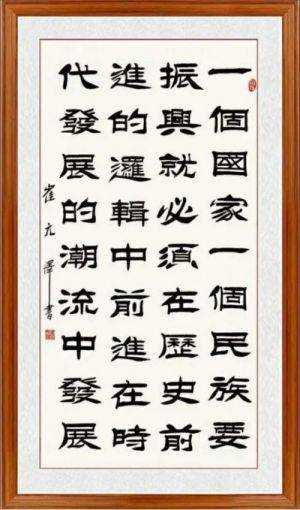 一個國家一個民族要
振興就必須在歷史前
進的邏輯中前進在時
代發展的潮流中發展
崔元澤書